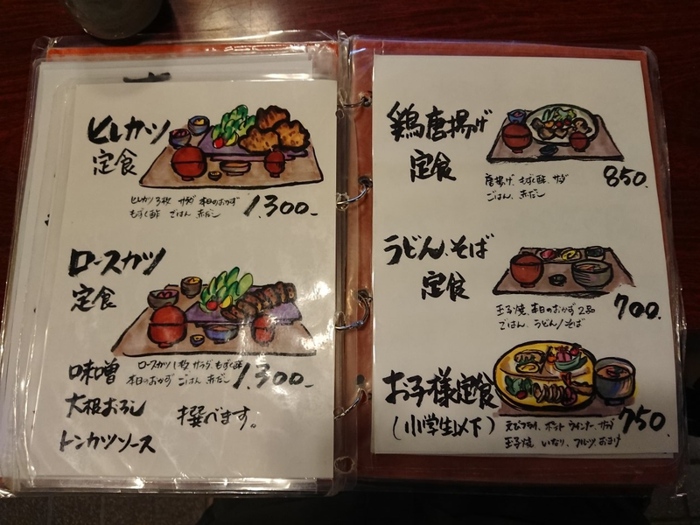 ヒレカツ
定食
ヒレカツ3枚 サラダ 本日のおかず
もずく酢 ごはん 赤だし
1,300.-
ロースカツ
定食
ロースカツ1枚 サラダ もずく酢
本日のおかず ごはん 赤だし
1,300.-
味噌
大根おろし
トンカツソース
撰べます。
鶏唐揚げ
定食
唐揚げ、もずく酢、サラダ
ごはん、赤だし
850.-
うどん、そば
定食
玉子焼、本日のおかず2品
ごはん、うどん/そば
700.-
お子様定食
(小学生以下)
えびフライ、ポテト ウインナー、サラダ
玉子焼 いなり、フルーツ、おまけ
750